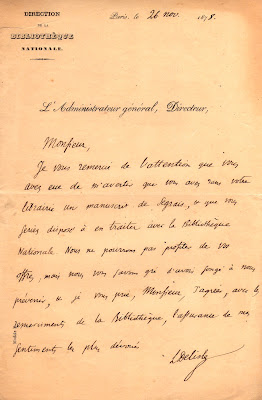 DIRECTION
DE LA
BIBLIOTHÈQUE
NATIONALE.
Paris, le 26 nov. 1878.
L'Administrateur général, Directeur,
Monsieur,
Je vous remercie de l'attention que vous
avez eue de m'avertir que vous avez dans votre
librairie un manuscrit de Segrais, et que vous
seriez disposé à en traiter avec la Bibliothèque
Nationale. Nous ne pourrons pas profiter de vos
offres, mais nous vous savons gré d'avoir songé à nous
prévenir, et je vous prie, Monsieur, d'agréer, avec les
remerciments de la Bibliothèque, l'assurance de mes
sentiments les plus dévoués
L Delisle